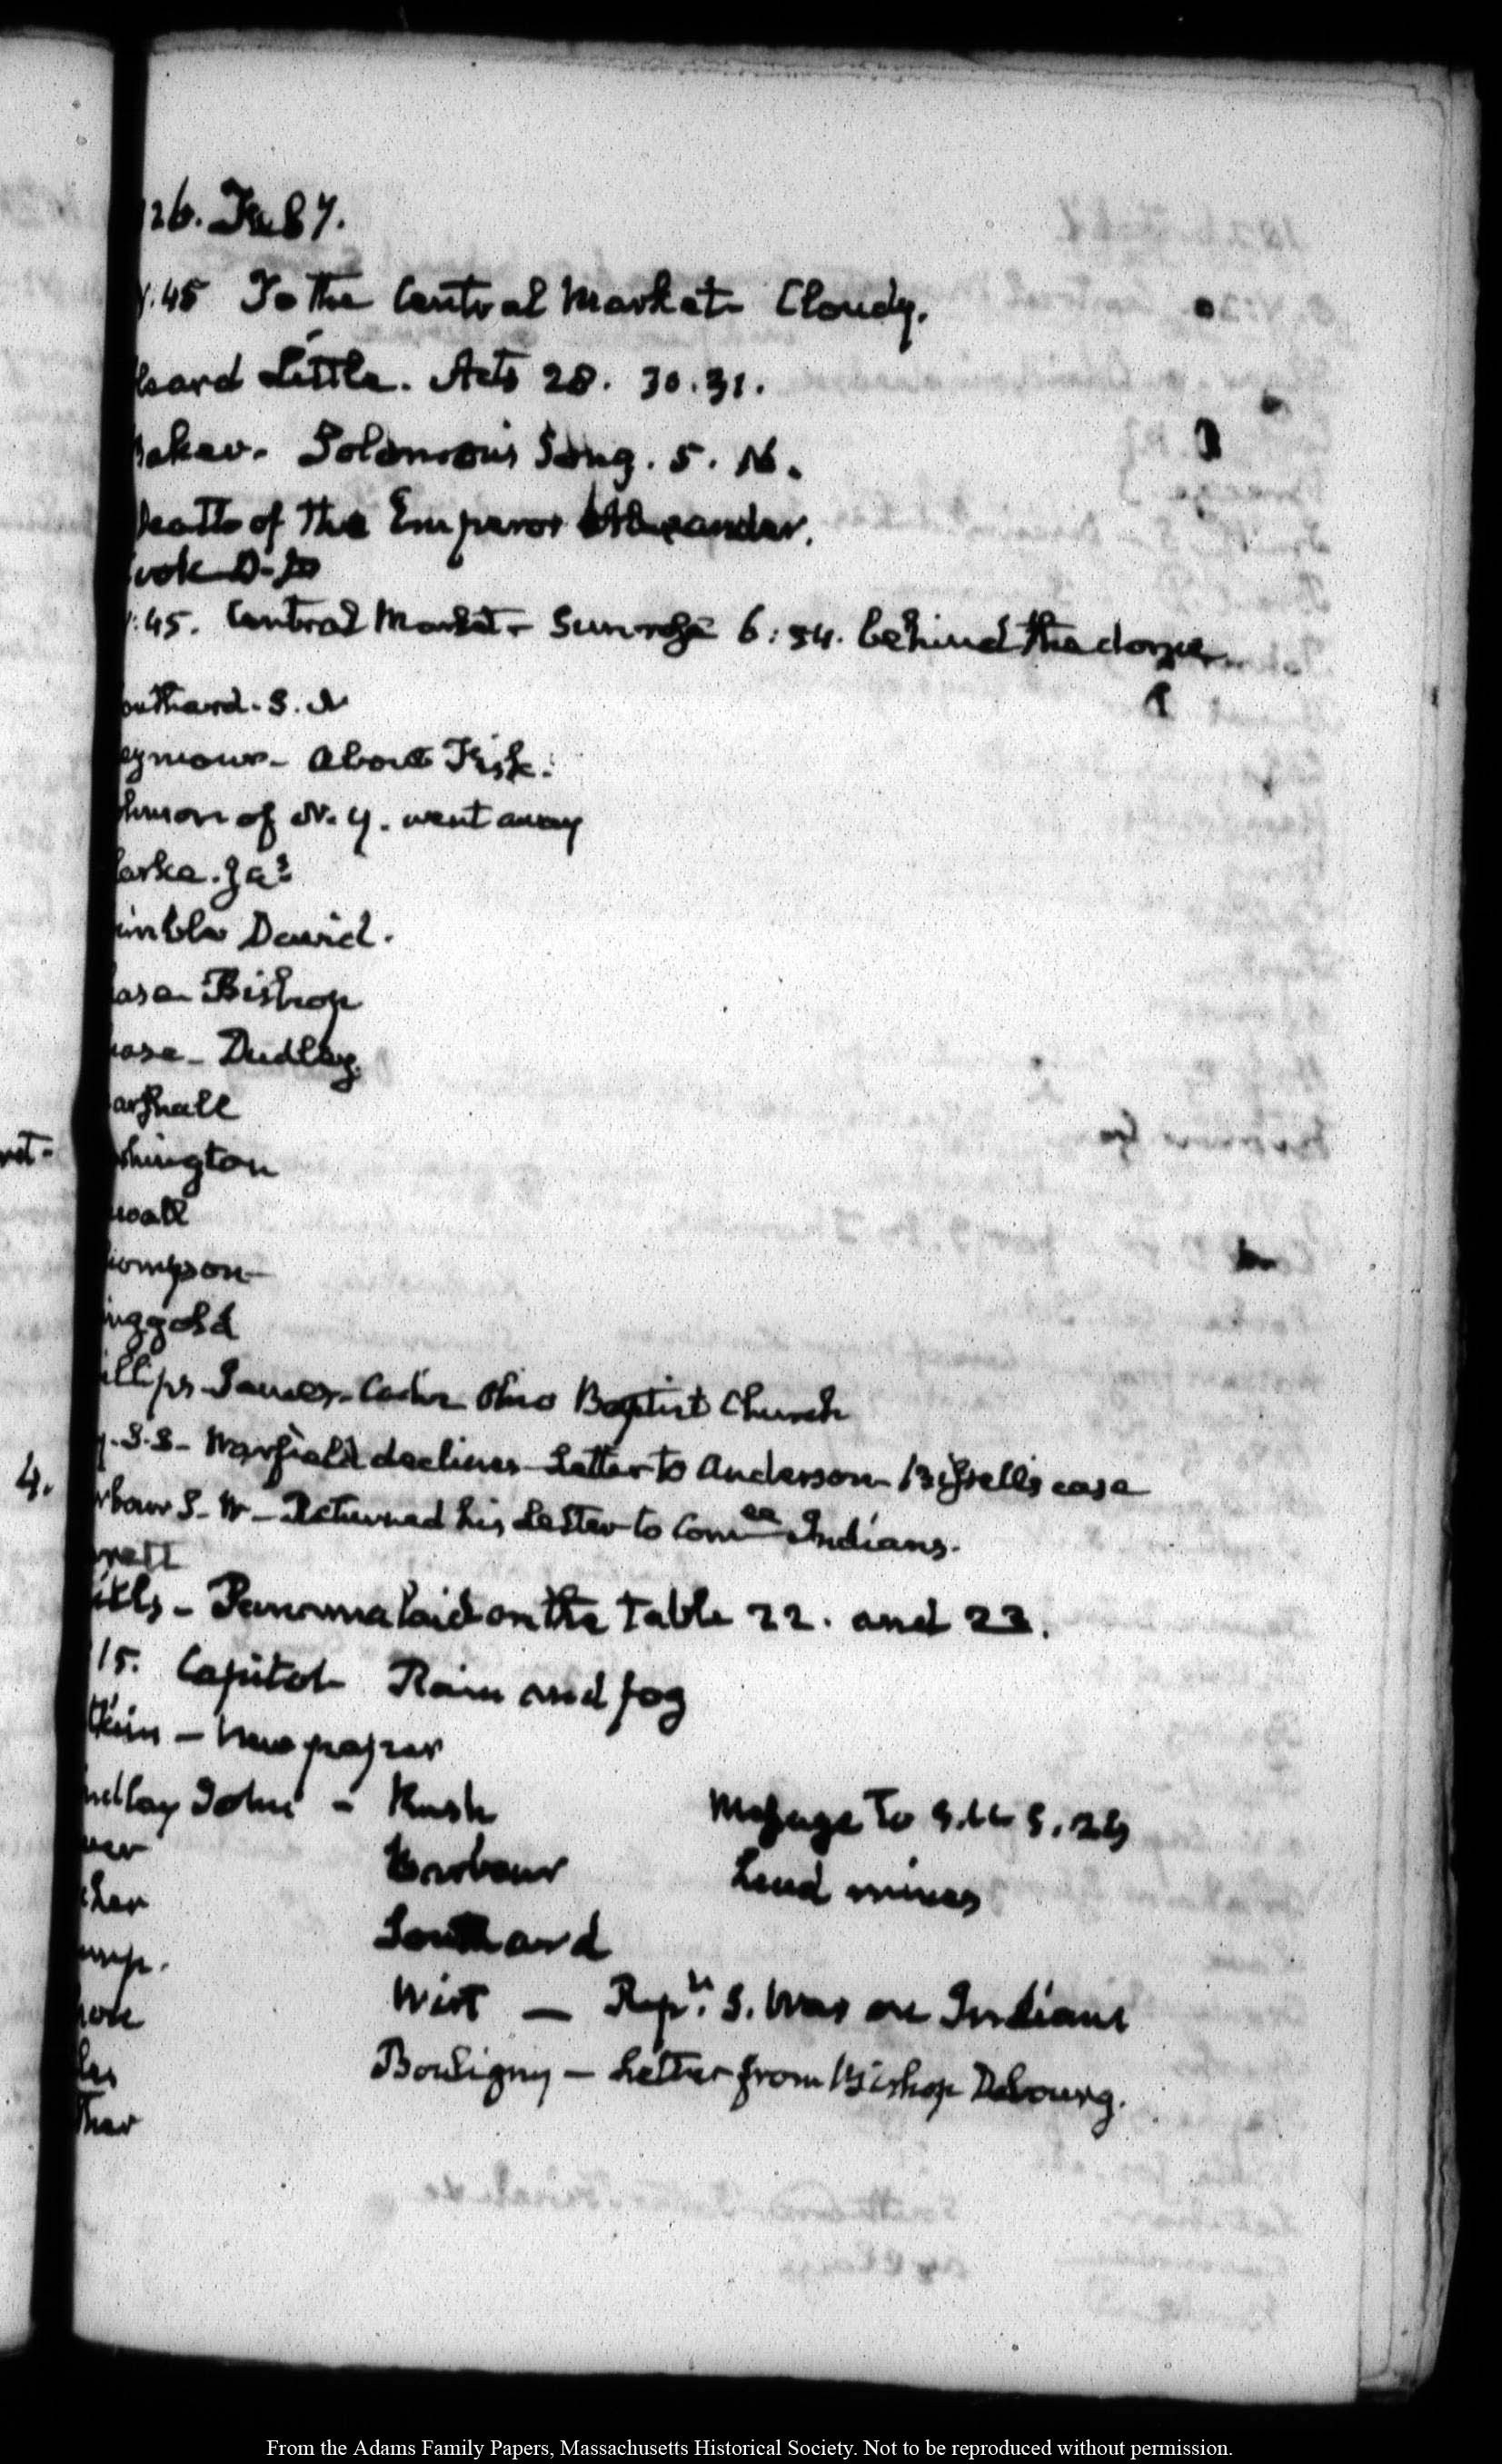 26. Feby.
:45 To the Central Market Cloudy.
heard Little. Acts 28. 30.31.
Baker. Solomon's Song. 5. 16.
Death of the Emperor Alexander.
:45. Central Market - Sunrise 6:54. behind the dome
outhard. S. N
eymour - about Fisk.
ohnson of N. Y. went away
larke. Jas
imble David.
hase Bishop
hase - Dudley
arshall
shington
uvall
hompson
inggold
illips James - Cadiz Ohio Baptist Church
y. S.S - Warfield declines - Letter to Anderson - Bissell's case
rbour S. W - Returned his Letter to Comee Indians.
rett
ills - Panama laid on the table 22. and 23.
15. Capitol - Rain and fog
tkin - Newspaper
ndlay John - Rush Message to S.U.S. 
ver Barbour Lead mines
ther Southard
mp. Wirt — Rept. S. War on Indians
Bouligny — Letter from Bishop Dubourg.
ther
ret -
4.
From the Adams Family Papers, Massachusetts Historical Society. Not to be reproduced without permission.